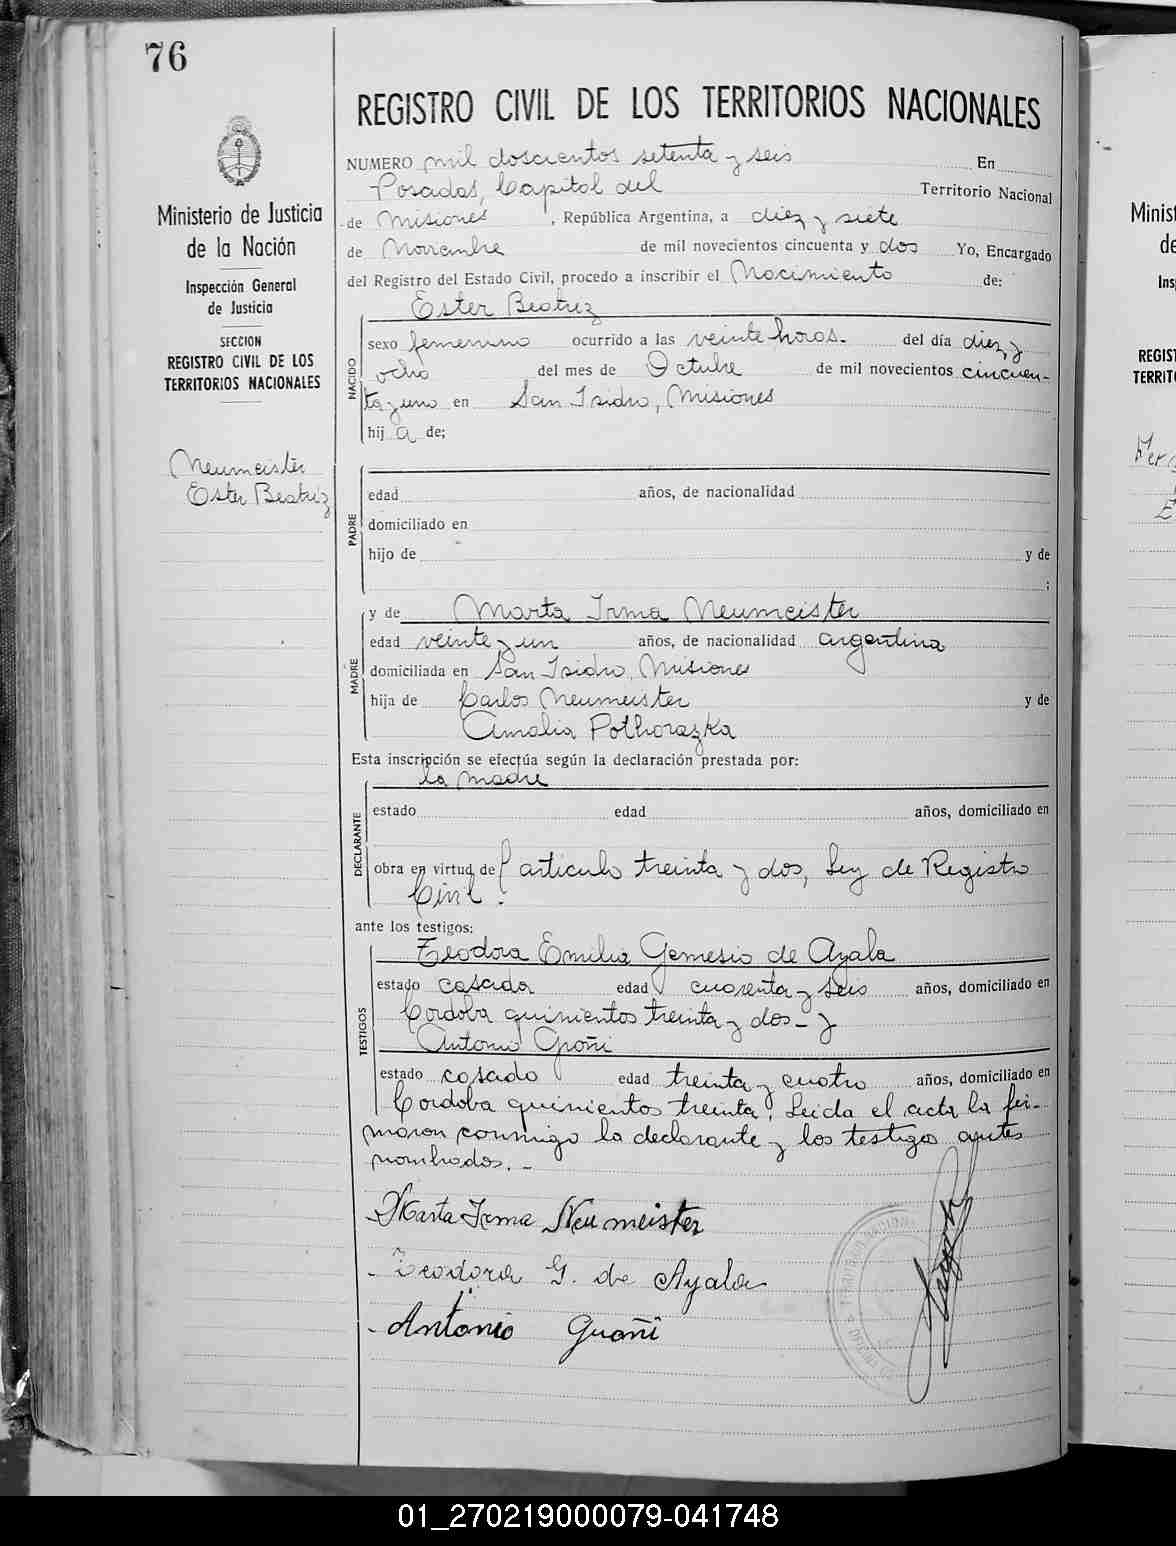 76
REGISTRO CIVIL DE LOS TERRITORIOS NACIONALES
Ministerio de Justicia
de la Nación
Inspección General
de Justicia
SECCION
REGISTRO CIVIL DE LOS
TERRITORIOS NACIONALES
Neumeister
Ester Beatriz
NUMERO mil doscientos setenta y seis En
Posadas, Capital del Territorio Nacional
de Misiones, República Argentina, a diez y siete
de Noviembre de mil novecientos cincuenta y dos Yo, Encargado
del Registro del Estado Civil, procedo a inscribir el Nacimiento de:
Ester Beatriz
NACIDO
sexo femenino ocurrido a las veinte horas.- del día diez y
ocho del mes de Octubre de mil novecientos cincuen-
ta y uno en San Isidro, Misiones
hij a de;
PADRE
edad años, de nacionalidad
domiciliado en
hijo de y de
;
MADRE
y de Marta Irma Neumeister
edad veinte y un años, de nacionalidad argentina
domiciliada en San Isidro, Misiones
hija de Carlos Neumeister y de
Amalia Pothorazka
Esta inscripción se efectúa según la declaración prestada por:
la madre
DECLARANTE
estado edad años, domiciliado en
obra en virtud del articulo treinta y dos, Ley de Registro
Civil.
ante los testigos:
TESTIGOS
Teodora Emilia Gemesio de Ayala
estado casada edad cuarenta y seis años, domiciliado en
Cordoba quinientos treinta y dos - y
Antonio Groñi
estado casado edad treinta y cuatro años, domiciliado en
Cordoba quinientos treinta. Leida el acta la fir-
maron conmigo la declarante y los testigos antes
nombrados.-
Marta Irma Neumeister
Teodora G. de Ayala
Antonio Guañi
Minist
de
Ins
REGIST
TERRITO
01_270219000079-041748